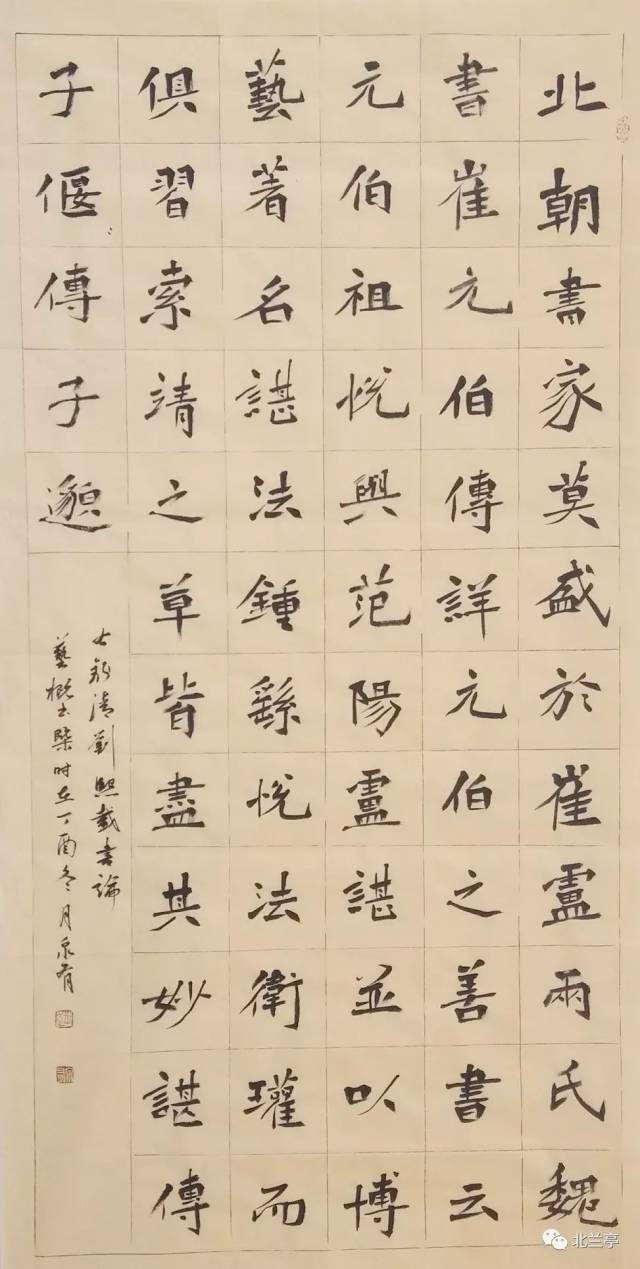 北朝書家莫盛於崔盧兩氏魏
書崔元伯傳詳元伯之善書云
元伯祖悅與范陽盧諶並以博
藝著名諶法鍾繇悅法衛瓘而
俱習索靖之草皆盡其妙諶傳
子偃傳子邈
右録清劉熙載書論
藝概書槩時在丁酉冬月永有
北兰亭